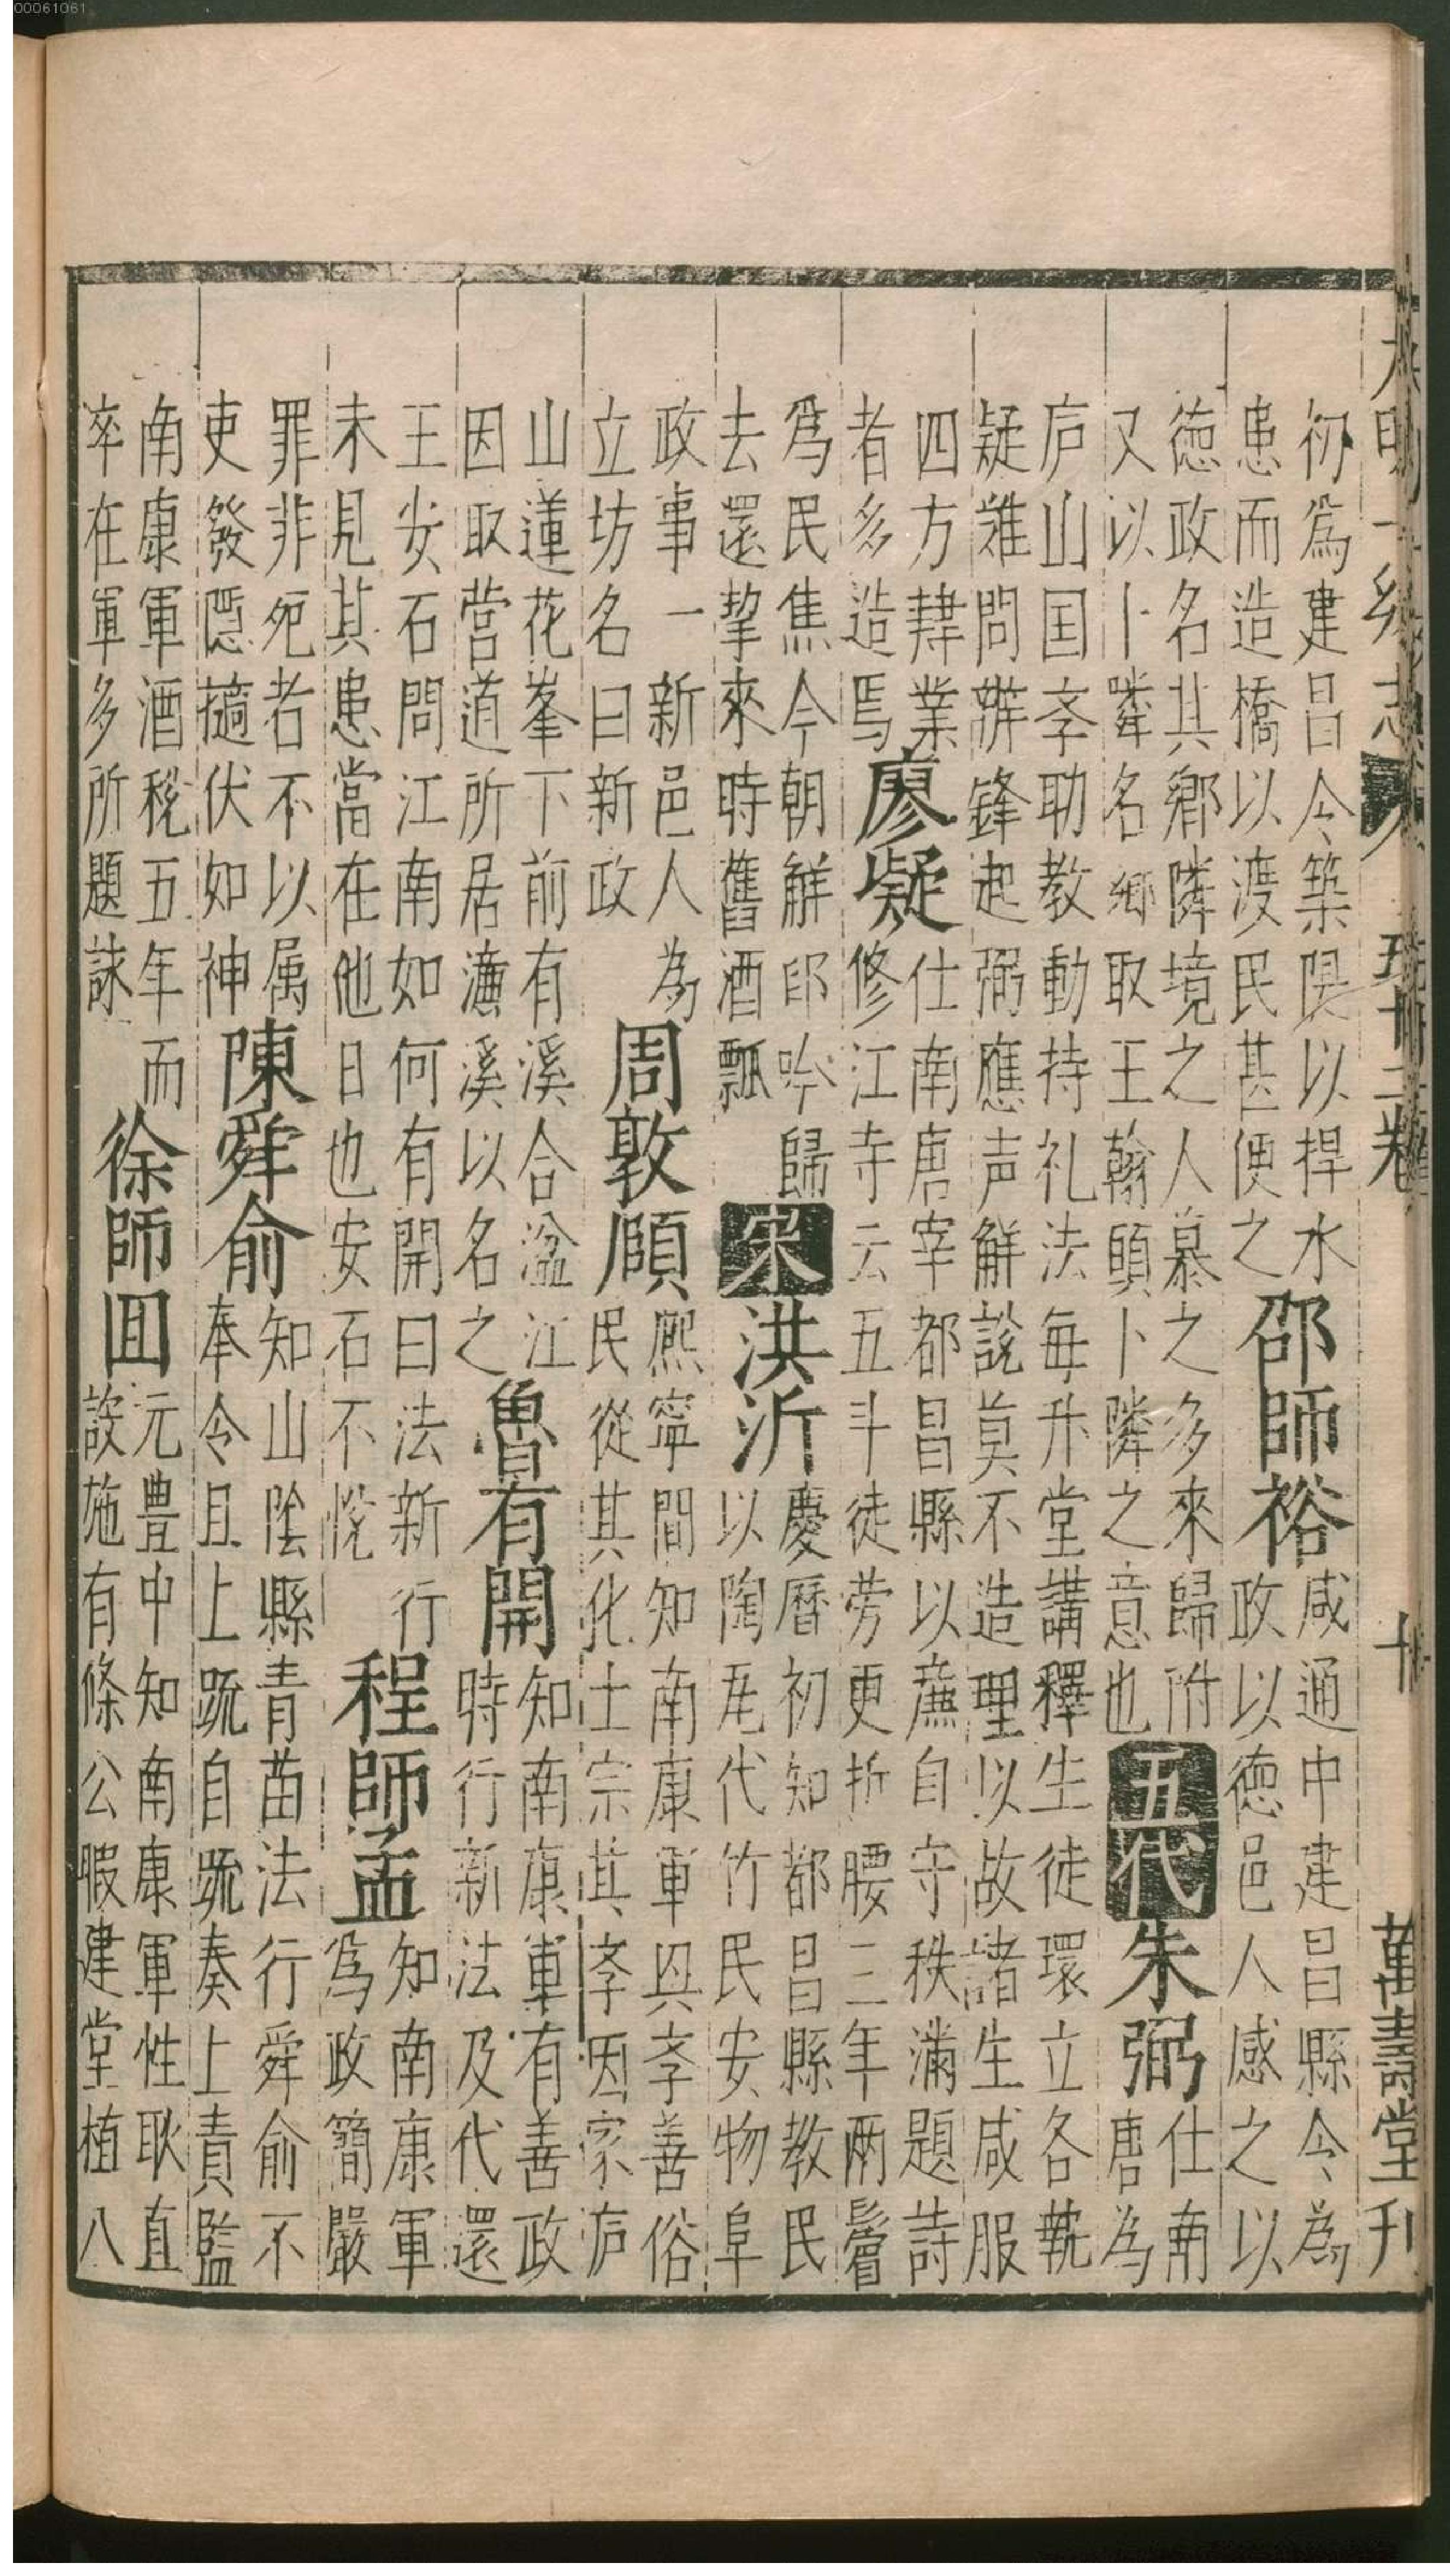 00061061
萬壽堂刊
初為建昌令築隄以捍水
患而造橋以渡民甚便之
邵師裕
咸通中建昌縣令為
政以德邑人感之以
德政名其鄉隣境之人慕之多來歸附
又以卜隣名鄉取王翰願卜隣之意也
五代
朱弼
仕南
唐為
庐山国斈助教動持礼法每升堂講釋生徒環立各執
疑難問辨鋒起弼應声解說莫不造理以故諸生咸服
四方肄業
者多造焉
廖凝
仕南唐宰都昌縣以亷自守秩滿題詩
修江寺云五斗徒劳更折腰三年兩鬢
為民焦今朝觧印吟歸
去還挈來時舊酒瓢
宋
洪沂
慶曆初知都昌縣教民
以陶瓦代竹民安物阜
政事一新邑人為
立坊名曰新政
周敦頤
熈寧間知南康軍與斈善俗
民從其化士宗其斈因家庐
山蓮花峯下前有溪合湓江
因取营道所居濂溪以名之
魯有開
知南康軍有善政
時行新法及代還
王安石問江南如何有開曰法新行
未見其患當在他日也安石不恱
程師孟
知南康軍
為政簡嚴
罪非死者不以属
吏發隠擿伏如神
陳舜俞
知山陰縣青苗法行舜俞不
奉令且上䟽自䟽奏上責監
南康軍酒税五年而
卒在軍多所題詠
徐師囬
元豊中知南康軍性耿直
設施有條公暇建堂植八